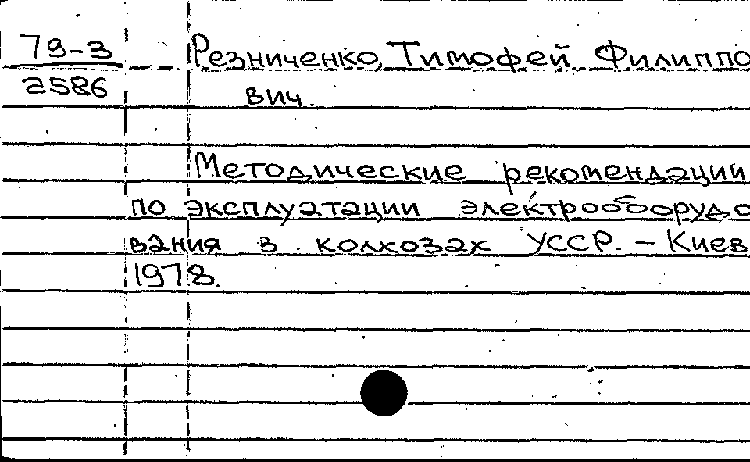 79-3
2586
Резниченко, Тимофей Филиппо
вич.
Методические рекомендации
по эксплуатации электрооборудо
вания в колхозах УССР. - Киев
1978.